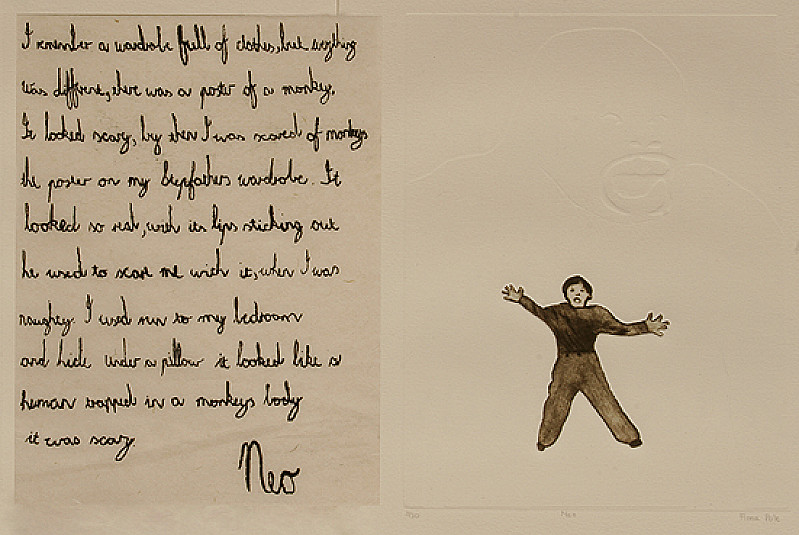 I remember a wardrobe full of clothes, but everything
was diffrent, there was a poster of a monkey.
It looked scary, by then I was scared of monkeys
the poster on my stepfathers wardrobe. It
looked so real, with its lips sticking out
he used to scare me with it, when I was
naughty. I used run to my bedroom
and hide under a pillow it looked like a
human trapped in a monkeys body
it was scary.
Neo
Neo